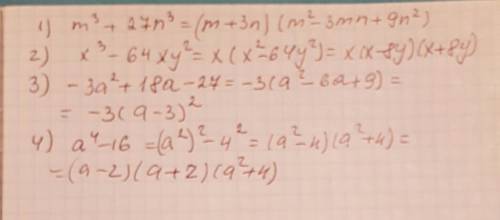 1) m³ + 27n³ = (m+3n) (m² - 3mn + 9n²)
2) x³ - 64xy² = x (x² - 64y²) = x(x-8y)(x+8y)
3) -3a² + 18a - 27 = -3(a² - 6a + 9) =
= -3(a-3)²
4) a⁴ - 16 = (a²)² - 4² = (a² - 4)(a² + 4) =
= (a-2)(a+2)(a² + 4)